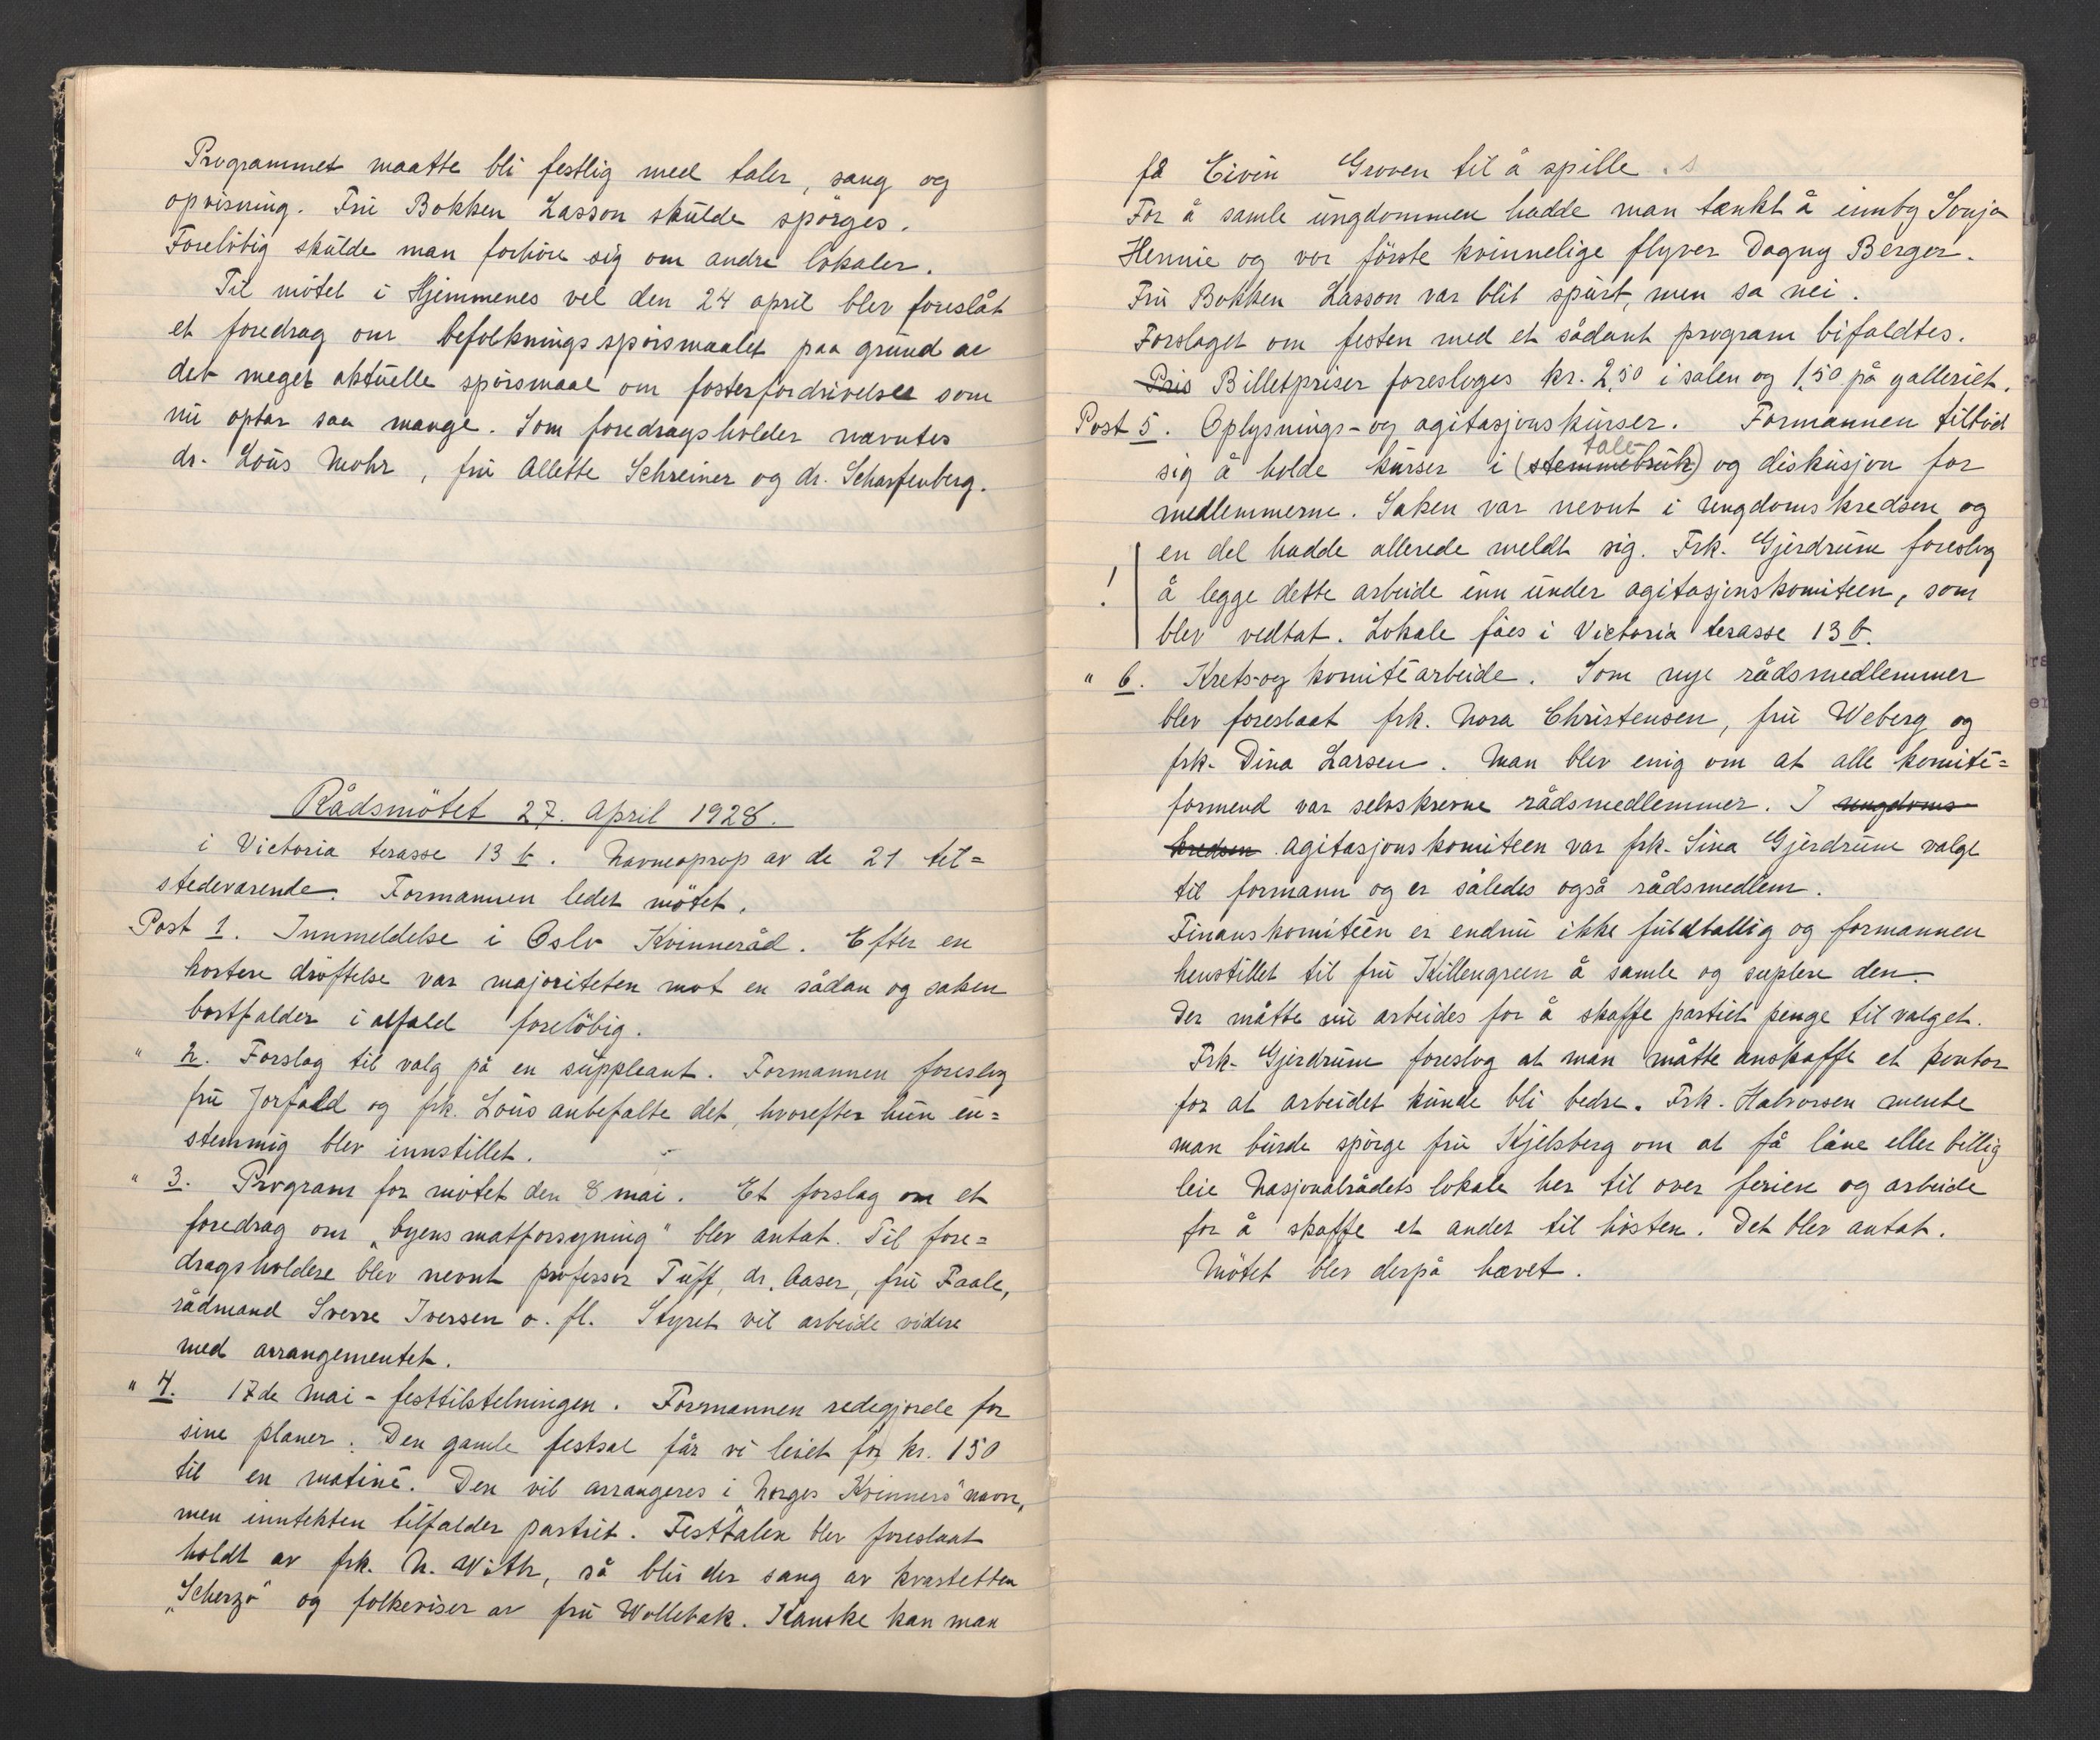 Programmet maatte bli festlig med taler, sang og
opvisning. Fru Bokken Lasson skulde spørges.
Foreløbig skulde man forhøre sig om andre lokaler.
Til møtet i Hjemmenes vel den 24 april blev foreslåt
et foredrag om befolkningsspørsmaalet paa grund av
det meget aktuelle spørsmaal om fosterfordrivelse som
nu optar saa mange. Som foredragsholder nævntes
dr. Louis Mohr, fru Allette Schreiner og dr. Scharfenberg.
Rådsmötet 27. April 1928.
i Victoria terasse 13 b. Navneoprop av de 21 til=
stedeværende. Formannen ledet mötet.
Post 1. Innmeldelse i Oslo Kvinneråd. Efter en
kortere dröftelse var majoriteten mot en sådan og saken
bortfalder i alfald forelöbig.
" 2. Forslag til valg på en suppleant. Formannen foreslog
fru Jorfald og frk. Lous anbefalte det, hvorefter hun en=
stemmig blev innstillet.
" 3. Program for mötet den 8 mai. Et forslag om et
foredrag om "byens matforsyning" blev antat. Til fore=
dragsholdere blev nevnt professor Tuff, dr. Aaser, fru Paale,
rådmand Sverre Iversen o. fl. Styret vil arbeide videre
med arrangementet.
" 4. 17de mai - festtilstelningen. Formannen redegjorde for
sine planer. Den gamle festsal får vi leiet for kr. 150
til en matiné. Den vil arrangeres i "Norges Kvinners" navn,
men inntekten tilfalder partiet. Festtalen blev foreslaat
holdt av frk. N. With, så blir der sang av kvartetten
"Scherzo" og folkeviser av fru Wollebæk. Kanske kan man
få Eivin Groven til å spille.
For å samle ungdommen hadde man tænkt å innby Sonja
Hennie og vor förste kvinnelige flyver Dagny Berger.
Fru Bokken Lasson var blit spurt, men sa nei.
Forslaget om festen med et sådant program bifaldtes.
Pris Billetpriser foresloges kr. 2,50 i salen og 1,50 på galleriet.
Post 5. Oplysnings- og agitasjonskurser. Formannen tilböd
sig å holde kurser i (stemmebruk) tale- og diskusjon for
medlemmerne. Saken var nevnt i Ungdomskredsen og
en del hadde allerede meldt sig. Frk. Gjerdrum foreslog
! å legge dette arbeide inn under agitasjonskomiteen, som
blev vedtat. Lokale fåes i Victoria terasse 13 b.
" 6. Krets- og komitéarbeide. Som nye rådsmedlemmer
blev foreslaat frk. Nora Christensen, fru Weberg og
frk. Dina Larsen. Man blev enig om at alle komité=
formend var selvskrevne rådsmedlemmer. I ungdoms-
kredsen agitasjonskomiteen var frk. Sina Gjerdrum valgt
til formann og er således også rådsmedlem.
Finanskomitéen er endnu ikke fuldtallig og formannen
henstillet til fru Killengreen å samle og suplere den.
Der måtte nu arbeides for å skaffe partiet penge til valget.
Frk. Gjerdrum foreslog at man måtte anskaffe et kontor
for at arbeidet kunde bli bedre. Frk. Halvorsen mente
man burde spörge fru Kjelsberg om at få låne eller billig
leie Nasjonalrådets lokale her til over ferien og arbeide
for å skaffe et andet til hösten. Det blev antat.
Mötet blev derpå hævet.